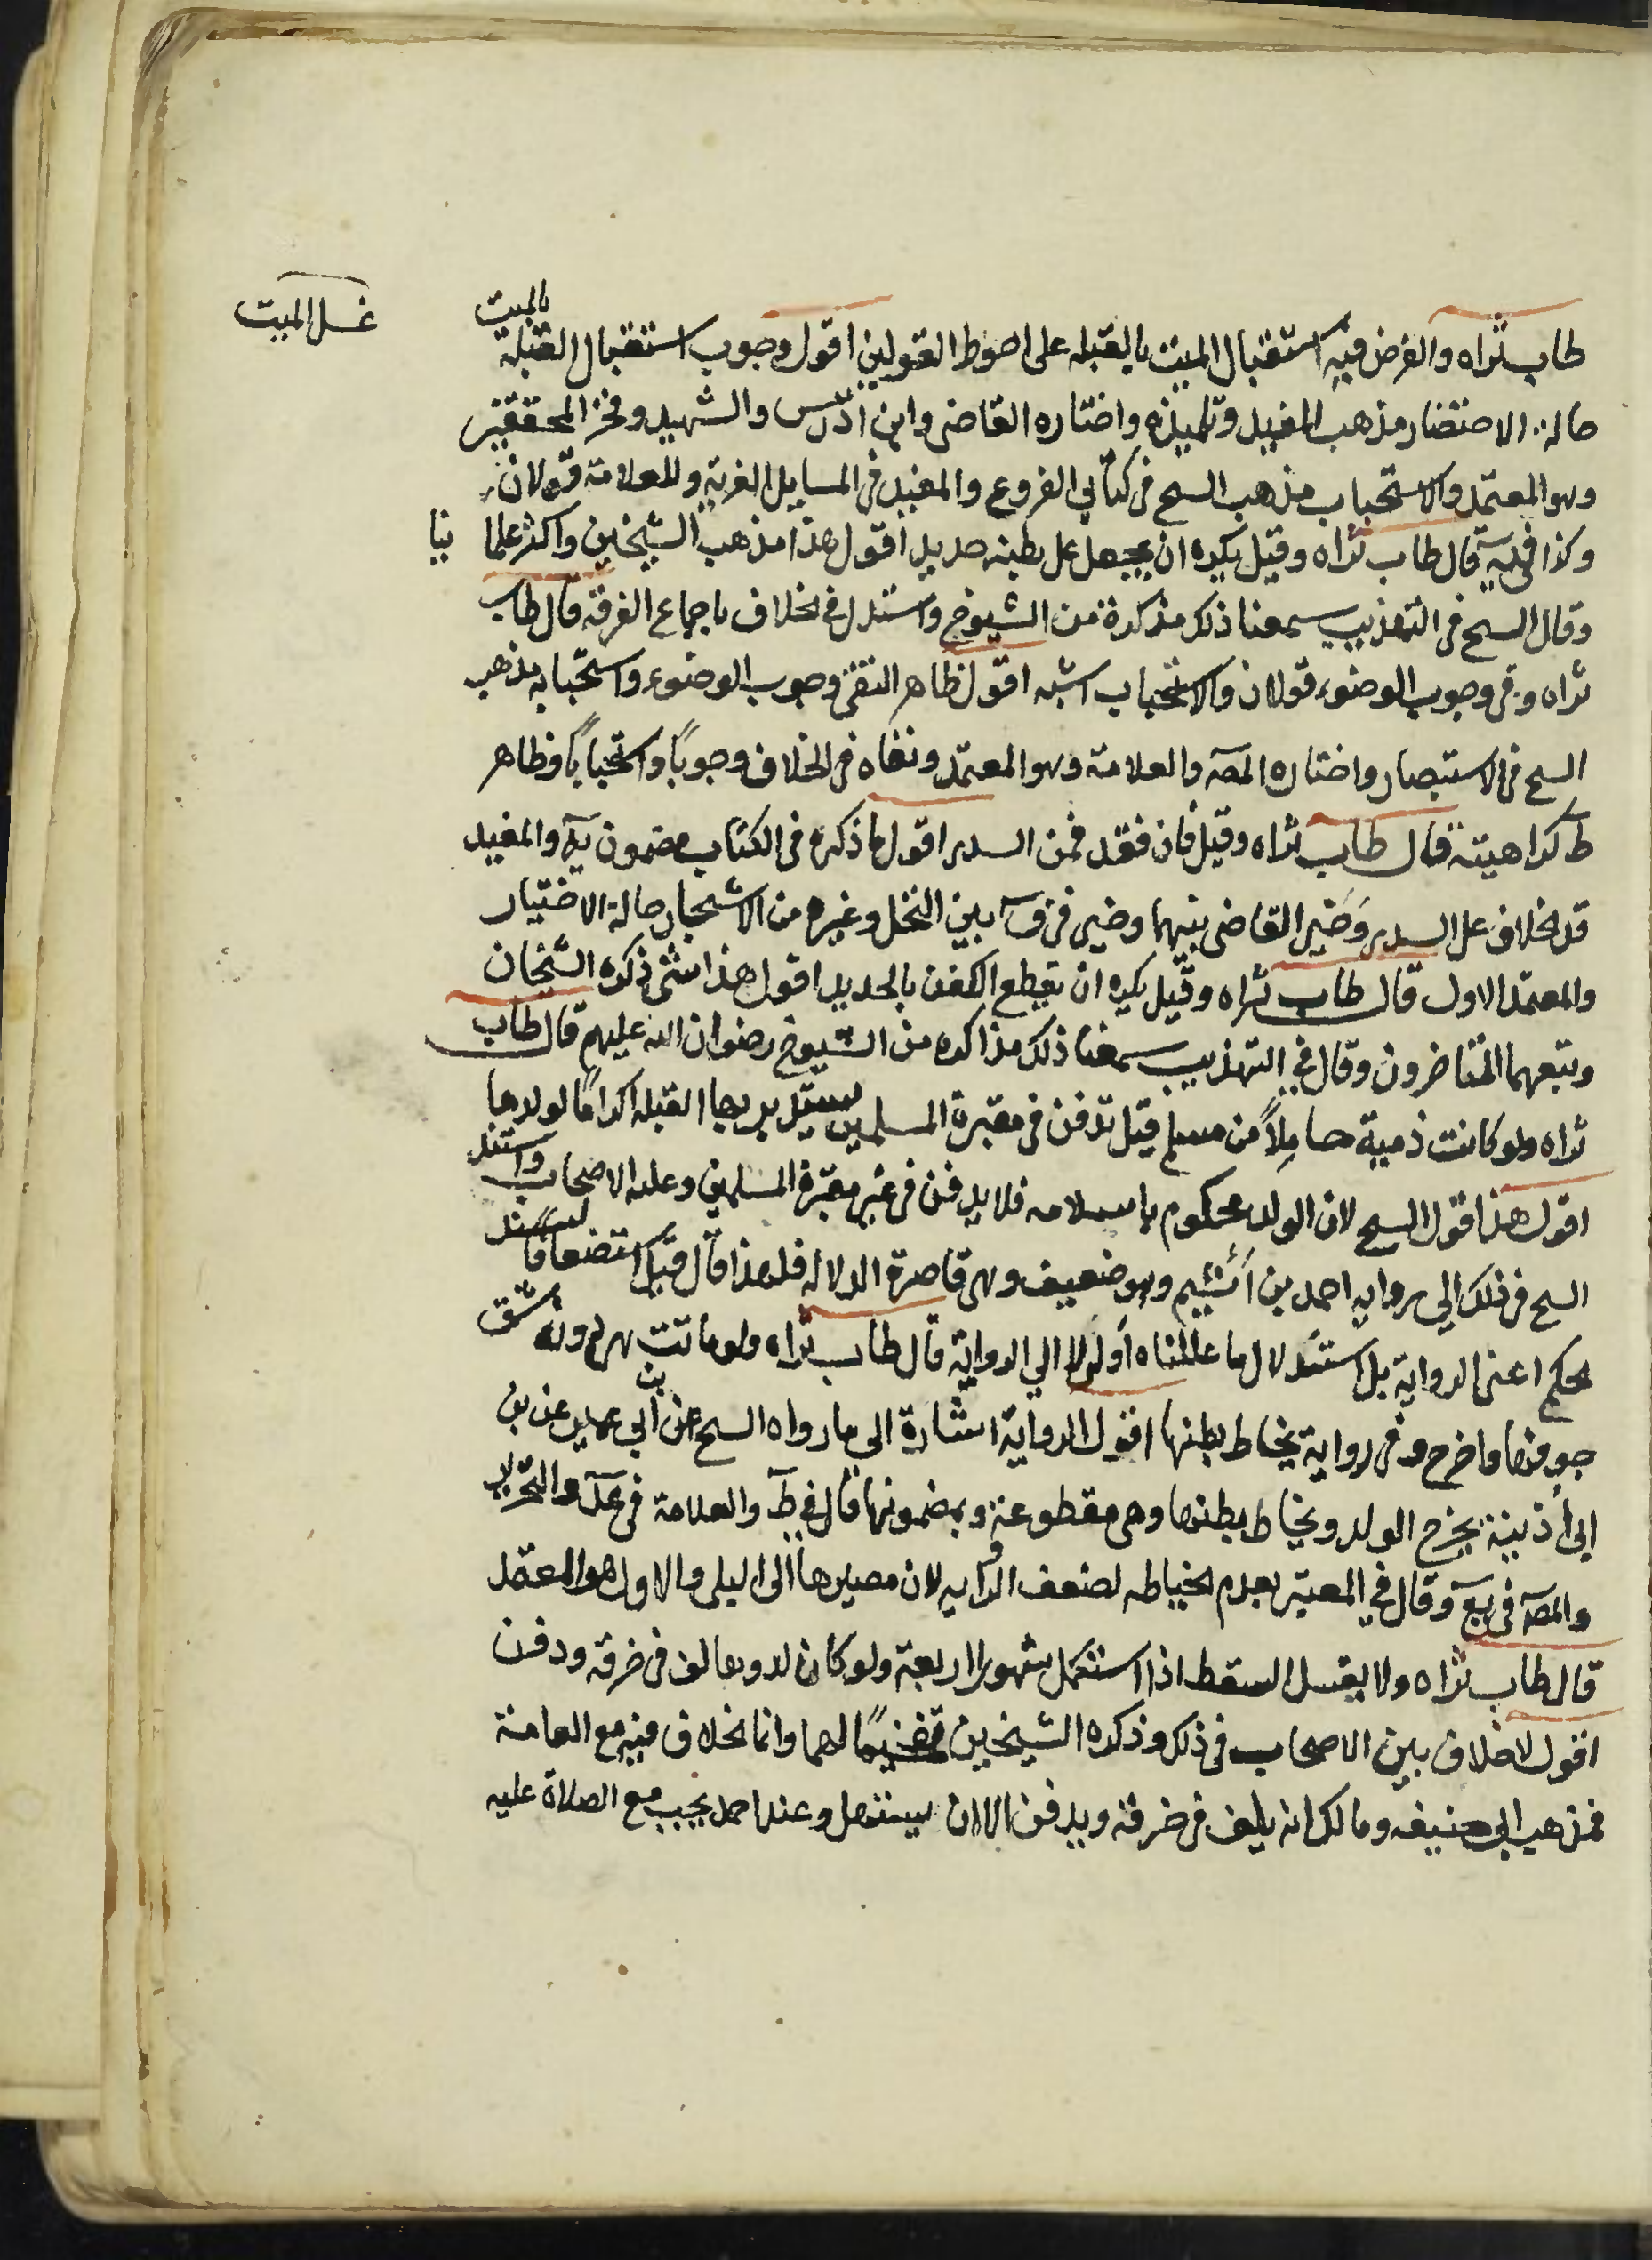 غسل الميت
بالميت
طاب ثراه والفرض فيه استقبال الميت بالقبله على احوط القولين اقول وجوب استقبال القبلة
حالة الاحتضار مذهب المفيد وتلميذه واختاره القاضى وابن ادريس والشهيد وفخر المحققين
وهو المعتمد والاستحباب مذهب السح فى كتابي الفروع والمفيد فى المسايل الغرية وللعلامة قولان
وكذا قال طاب ثراه وقيل يكره ان يجعل على بطنه حديد اقول هذا مذهب الشيخين واكثر علما ينا
وقال السح فى التهذيب سمعنا ذلك مذكرة من الشيوخ واستدل فى الخلاف باجماع الفرقة قال طاب
ثراه وفى وجوب الوضوء قولان والاستحباب اشبه اقول ظاهر التقى وجوب الوضوء واستحبابه مذهب
السح فى الاستبصار واختاره المصـ والعلامة وهو المعتمد ونفاه فى الخلاف وجوباً واستحباباً وظاهر
ط كراهيته قال طاب ثراه وقيل فان فقد فمن السدر اقول ما ذكره فى الكتاب مضمون يه والمفيد
قدم الخلاف على السدر وخير القاضى بينهما وخير فى ف بين النخل وغيره من الاشجار حالة الاختيار
والمعتمد الاول قال طاب ثراه وقيل يكره ان يقطع الكفن بالحديد اقول هذا شئ ذكره الشيخان
وتبعهما المتاخرون وقال فى التهذيب سمعنا ذلك مذاكره من الشيوخ رضوان الله عليهم قال طاب
ثراه ولو كانت ذمية حاملاً من مسلم قيل تدفن فى مقبرة المسلمين يستدبر بها القبله اكراماً لولدها
اقول هذا قول السح لان الولد محكوم باسلامه فلا يدفن فى غير مقبرة المسلمين وعليه الاصحاب واستند
السح فى ذلك الى روايه احمد بن اشيم وهو ضعيف وهى قاصرة الدلاله فلهذا قال قيل استضعافا لسند
الحكم اعنى الرواية بل استدلال ما عللناه اولى لا الى الرواية قال طاب ثراه ولو ماتت هى دونه شق
جوفها واخرج وفى رواية يخاط بطنها اقول الرواية اشارة الى ما رواه السح عن ابي عمير عن بن
ابى اذينة يخرج الولد ويخاط بطنها وهى مقطوعة وبمضمونها قال فى ط والعلامة فى عد والتحرير
والمصـ فى يع وقال فى المعتبر بعدم الخياطه لضعف الروايه لان مصيرها الى البلى والاول هو المعتمد
قال طاب ثراه ولا يغسل السقط اذا استكمل شهورا اربعة ولو كان لدونها لف فى خرقة ودفن
اقول لا خلاف بين الاصحاب فى ذلك وذكره الشيخين تفخيماً لهما وانما الخلاف فيه مع العامة
فمذهب ابى حنيفه ومالك انه يلف فى خرقة ويدفن الا ان يستهل وعند احمد يجب مع الصلاة عليه